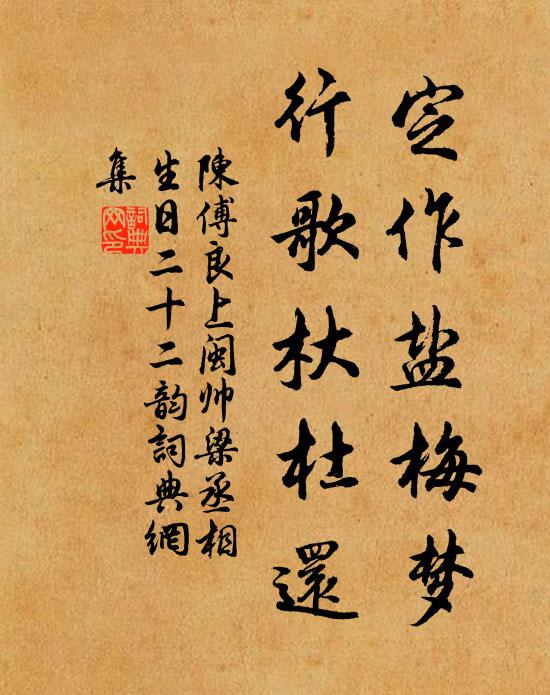 定作盐梅梦
行歌杕杜還
陳傅良上闽帅梁丞相
生日二十二韵詞典網
集
詞典
网印